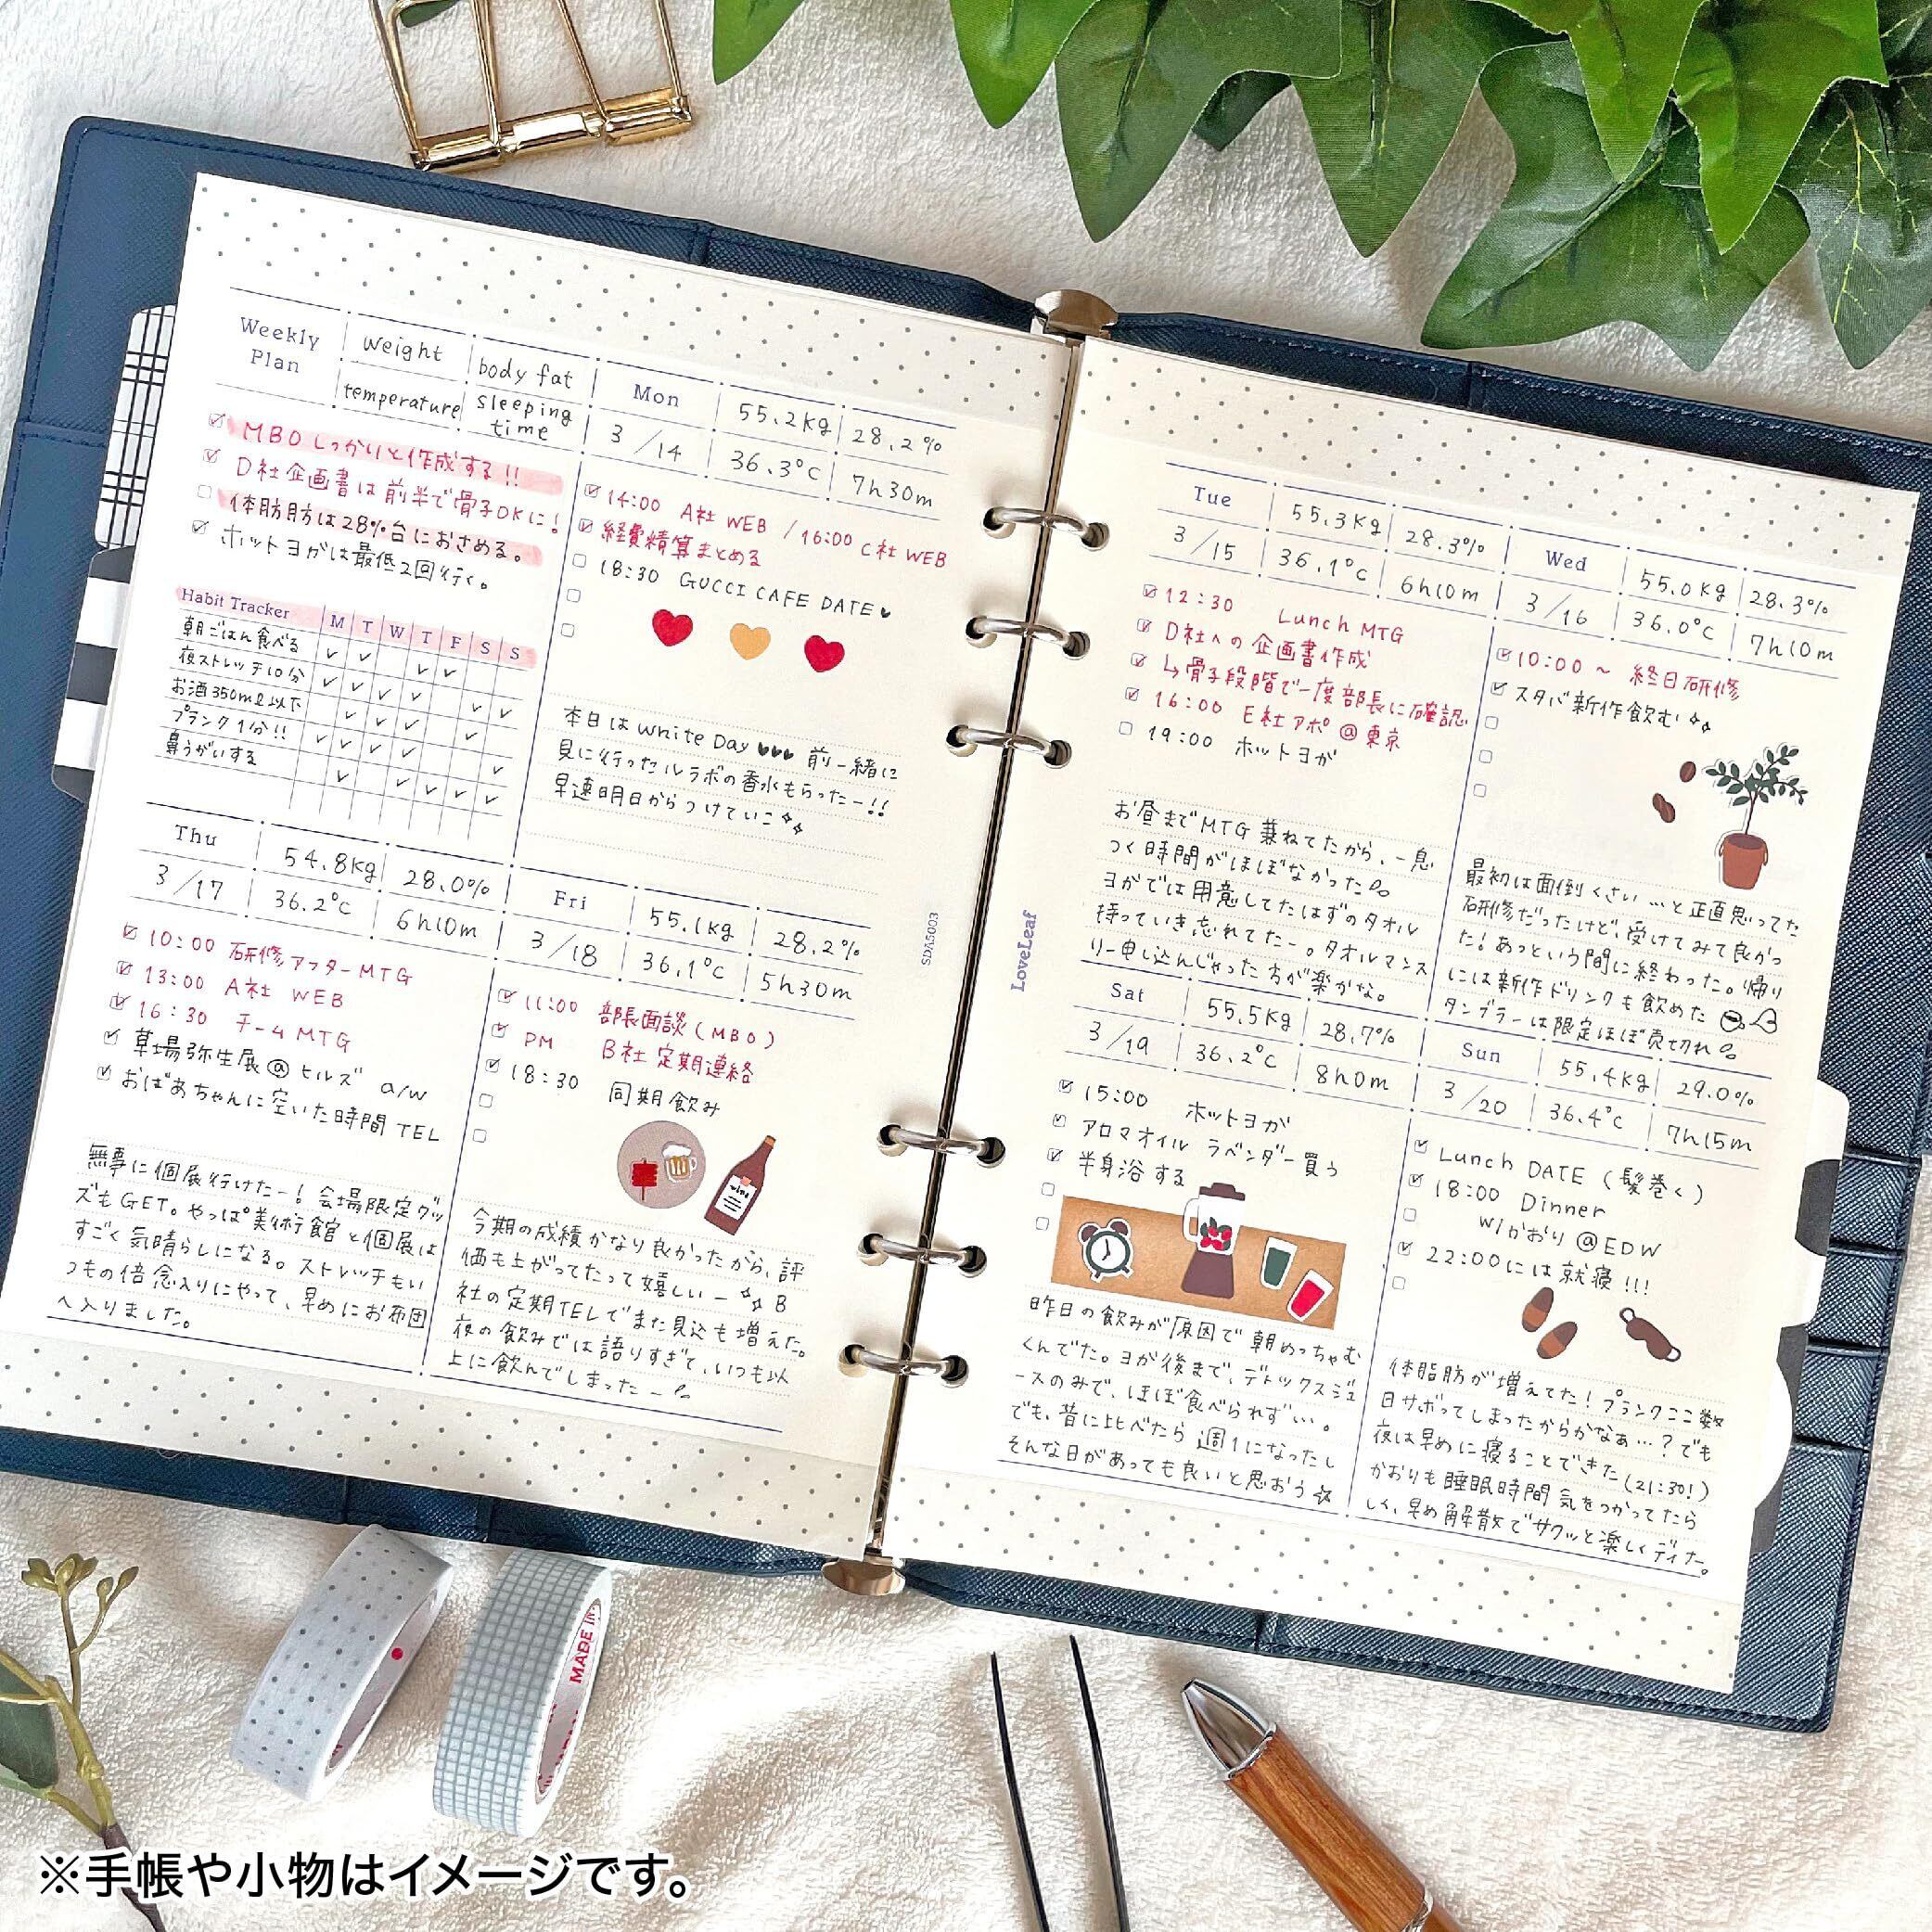 Weekly
Plan
weight
body fat
temperature
sleeping
time
☑ MBOしっかりと作成する!!
☑ D社企画書は前半で骨子OKに!
☐ 体脂肪は28%台におさめる。
☑ ホットヨガは最低2回行く。
Habit Tracker M T W T F S S
朝ごはん食べる
夜ストレッチ10分
お酒350ml以下
プランク1分!!
鼻うがいする
Mon
55.2kg 28.2%
3/14
36.3℃ 7h30m
☑ 14:00 A社 WEB / 16:00 C社 WEB
☑ 経費精算まとめる
☐ 18:30 GUCCI CAFE DATE♥
本日は White Day ♥♥♥ 前一緒に
見に行ったルラボの香水もらったー!!
早速明日からつけていこ
Thu
54.8kg 28.0%
3/17
36.2℃ 6h10m
☑ 10:00 研修アフターMTG
☑ 13:00 A社 WEB
☑ 16:30 チームMTG
☑ 草場弥生展@ヒルズ a/w
☑ おばあちゃんに空いた時間TEL
無事に個展行けたー!会場限定グッ
ズもGET。やっぱ美術館と個展は
すごく気晴らしになる。ストレッチもい
つもの倍念入りにやって、早めにお布団
へ入りました。
Fri
55.1kg 28.2%
3/18
36.1℃ 5h30m
☑ 11:00 部長面談(MBO)
☑ PM B社定期連絡
☑ 18:30 同期飲み
wine
今期の成績かなり良かったから、評
価も上がってたって嬉しいー B
社の定期TELでまた見込も増えた。
夜の飲みでは語りすぎて、いつも以
上に飲んでしまったー
SDA5003
LoveLeaf
Tue
55.3kg 28.3%
3/15
36.1℃ 6h10m
☑ 12:30 Lunch MTG
☑ D社への企画書作成
☑ ↳骨子段階で一度部長に確認
☑ 16:00 E社アポ@東京
☐ 19:00 ホットヨガ
お昼までMTG兼ねてたから、一息
つく時間がほぼなかった
ヨガでは用意してたはずのタオル
持っていき忘れてたー。タオルマンス
リー申し込んじゃった方が楽かな。
Wed
55.0kg 28.3%
3/16
36.0℃ 7h10m
☑ 10:00～ 終日研修
☑ スタバ新作飲む!
最初は面倒くさい…と正直思ってた
研修だったけど、受けてみて良かっ
た!あっという間に終わった。帰り
には新作ドリンクも飲めた
タンブラーは限定ほぼ売切れ
Sat
55.5kg 28.7%
3/19
36.2℃ 8h0m
☑ 15:00 ホットヨガ
☑ アロマオイル ラベンダー買う
☑ 半身浴する
昨日の飲みが原因で朝めっちゃむ
くんでた。ヨガ後まで、デトックスジュ
ースのみで、ほぼ食べられずい。
でも、昔に比べたら週1になったし
そんな日があっても良いと思おう☆
Sun
55.4kg 29.0%
3/20
36.4℃ 7h15m
☑ Lunch DATE (髪巻く)
☑ 18:00 Dinner
☐ w/かおり@EDW
☑ 22:00には就寝!!!
体脂肪が増えてた!プランクここ数
日サボってしまったからかなぁ…?でも
夜は早めに寝ることできた(21:30!)
かおりも睡眠時間気をつかってたら
しく、早め解散でサクッと楽しくディナー。
MADE IN
※手帳や小物はイメージです。